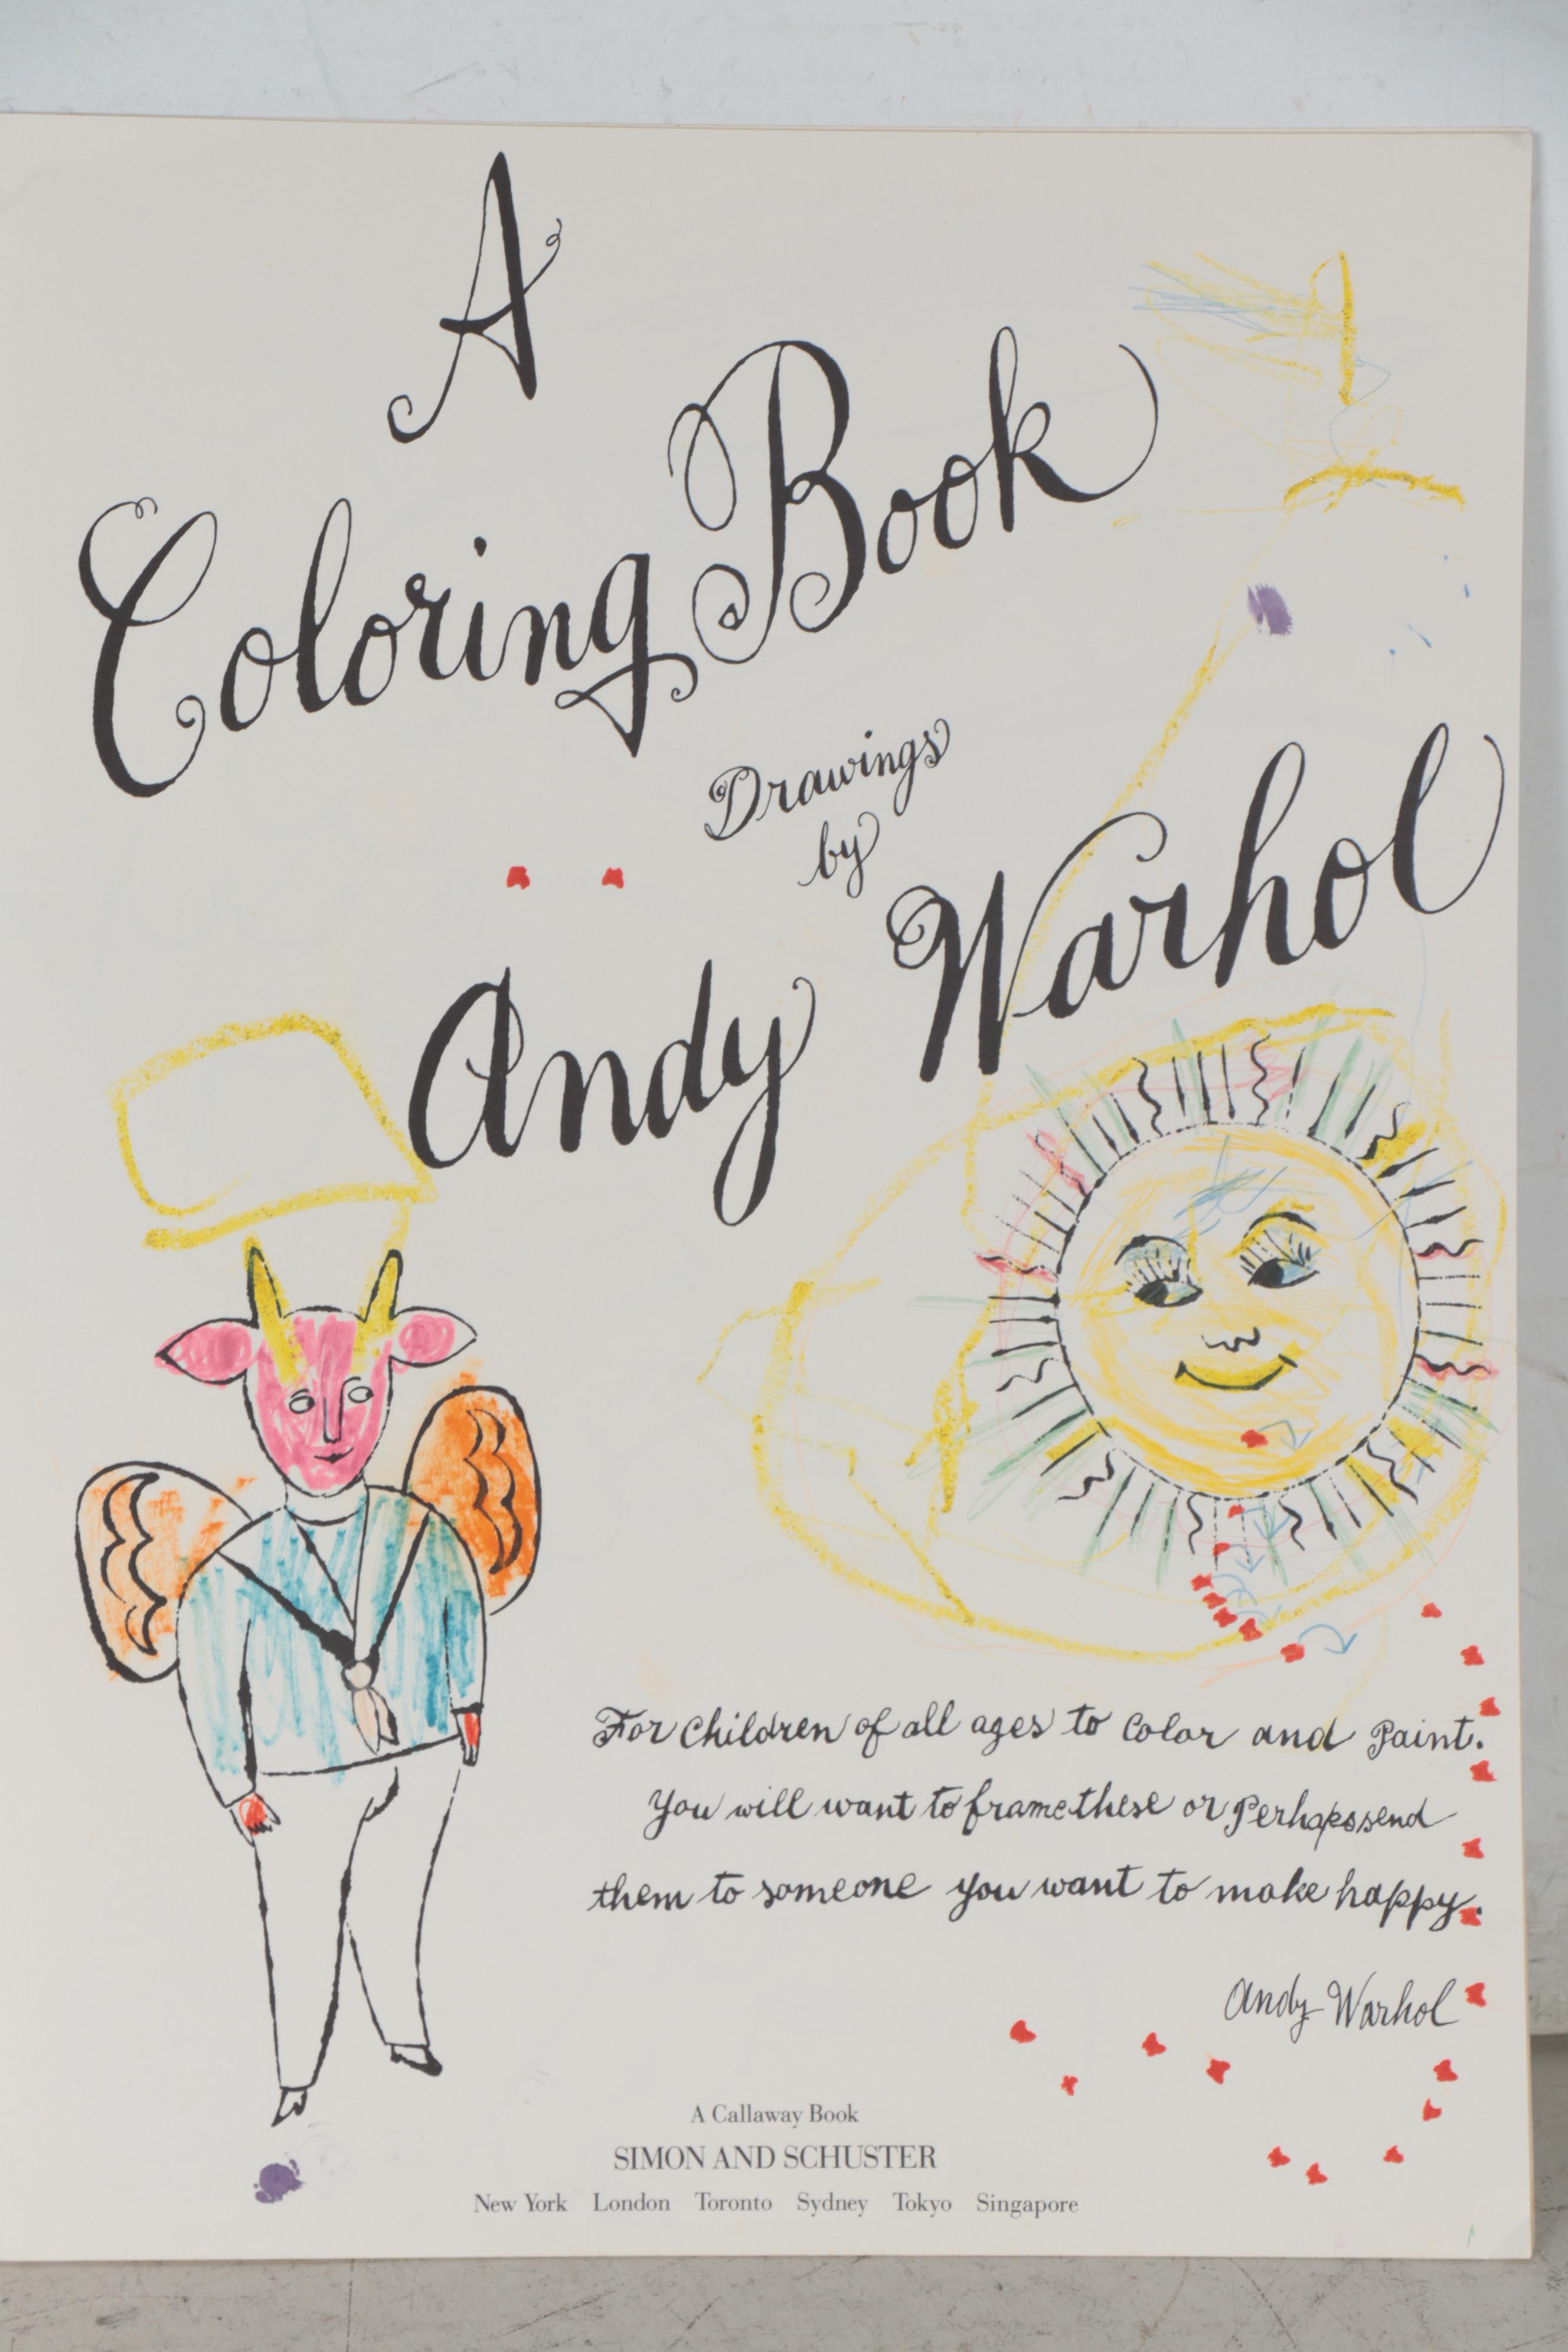 A
Coloring Book
Drawings
by
Andy Warhol
For Children of all ages to Color and Paint.
You will want to frame these or Perhaps send
them to someone you want to make happy.
Andy Warhol
A Callaway Book
SIMON AND SCHUSTER
New York London Toronto Sydney Tokyo Singapore